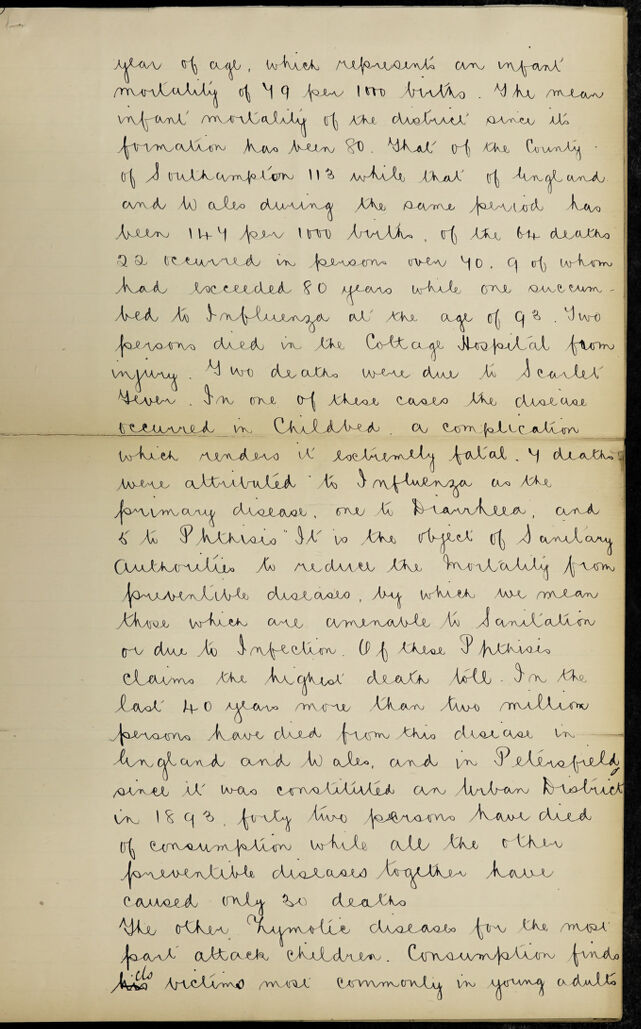 year of age, which represents an infant
mortality of 79 per 1000 births. The mean
infant mortality of the district since its
formation has been 80. That of the County
of Southampton 113 while that of England
and Wales during the same period has
been 147 per 1000 births, of the 64 deaths
22 occurred in persons over 70. 9 of whom
had exceeded 80 years while one succum-
bed to Influenza at the age of 93. Two
persons died in the Cottage Hospital from
injury. Two deaths were due to Scarlet
Fever. In one of these cases the disease
occurred in Childbed, a complication
which renders it extremely fatal. 7 deaths
were attributed to Influenza as the
primary disease, one to Diarrheea, and
5 to Phthisis It is the object of Sanitary
Authorities to reduce the Mortality from
preventible diseases, by which we mean
those which are amenable to Sanitation
or due to Infection. Of these Phthisis
claims the highest death toll. In the
last 40 years more than two million
persons have died from this disease in
England and Wales, and in Petersfield,
since it was constituted an Urban District
in 1893, forty two persons have died
of consumption while all the other
preventible diseases together have
caused only 30 deaths
The other Zymotic diseases for the most
part attack children. Consumption finds
its victims most commonly in young adults